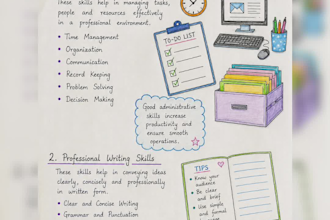 These skills help in managing tasks,
people and resources effectively
in a professional environment.
• Time Management
• Organisation
• Communication
• Record Keeping
• Problem Solving
• Decision Making
TO-DO LIST
Good administrative
skills increase
productivity and
ensure smooth
operations.
2. Professional Writing Skills
These skills help in conveying ideas
clearly, concisely and professionally
in written form.
• Clear and Concise Writing
• Grammar and Punctuation
TIPS
• Know your
audience
• Be clear
and brief
• Use simple
and formal